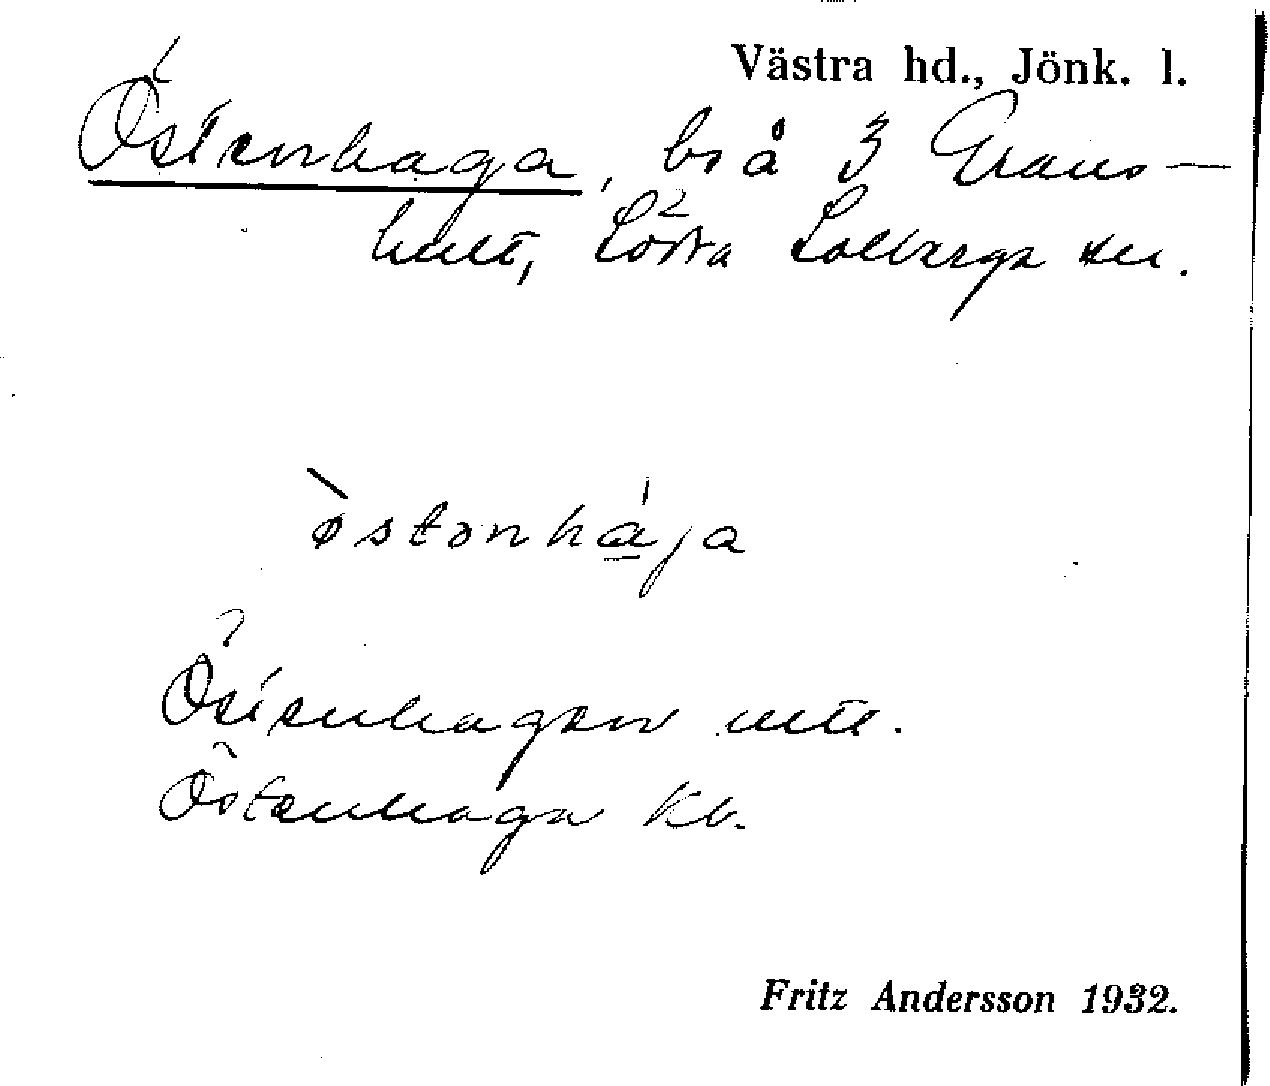 Västra hd., Jönk. l.
Östenhaga, br å 3 Grans-
hult, Södra Solberga sn.
østənhaja
Östenhagen utt.
Östenhaga Kb.
Fritz Andersson 1932.